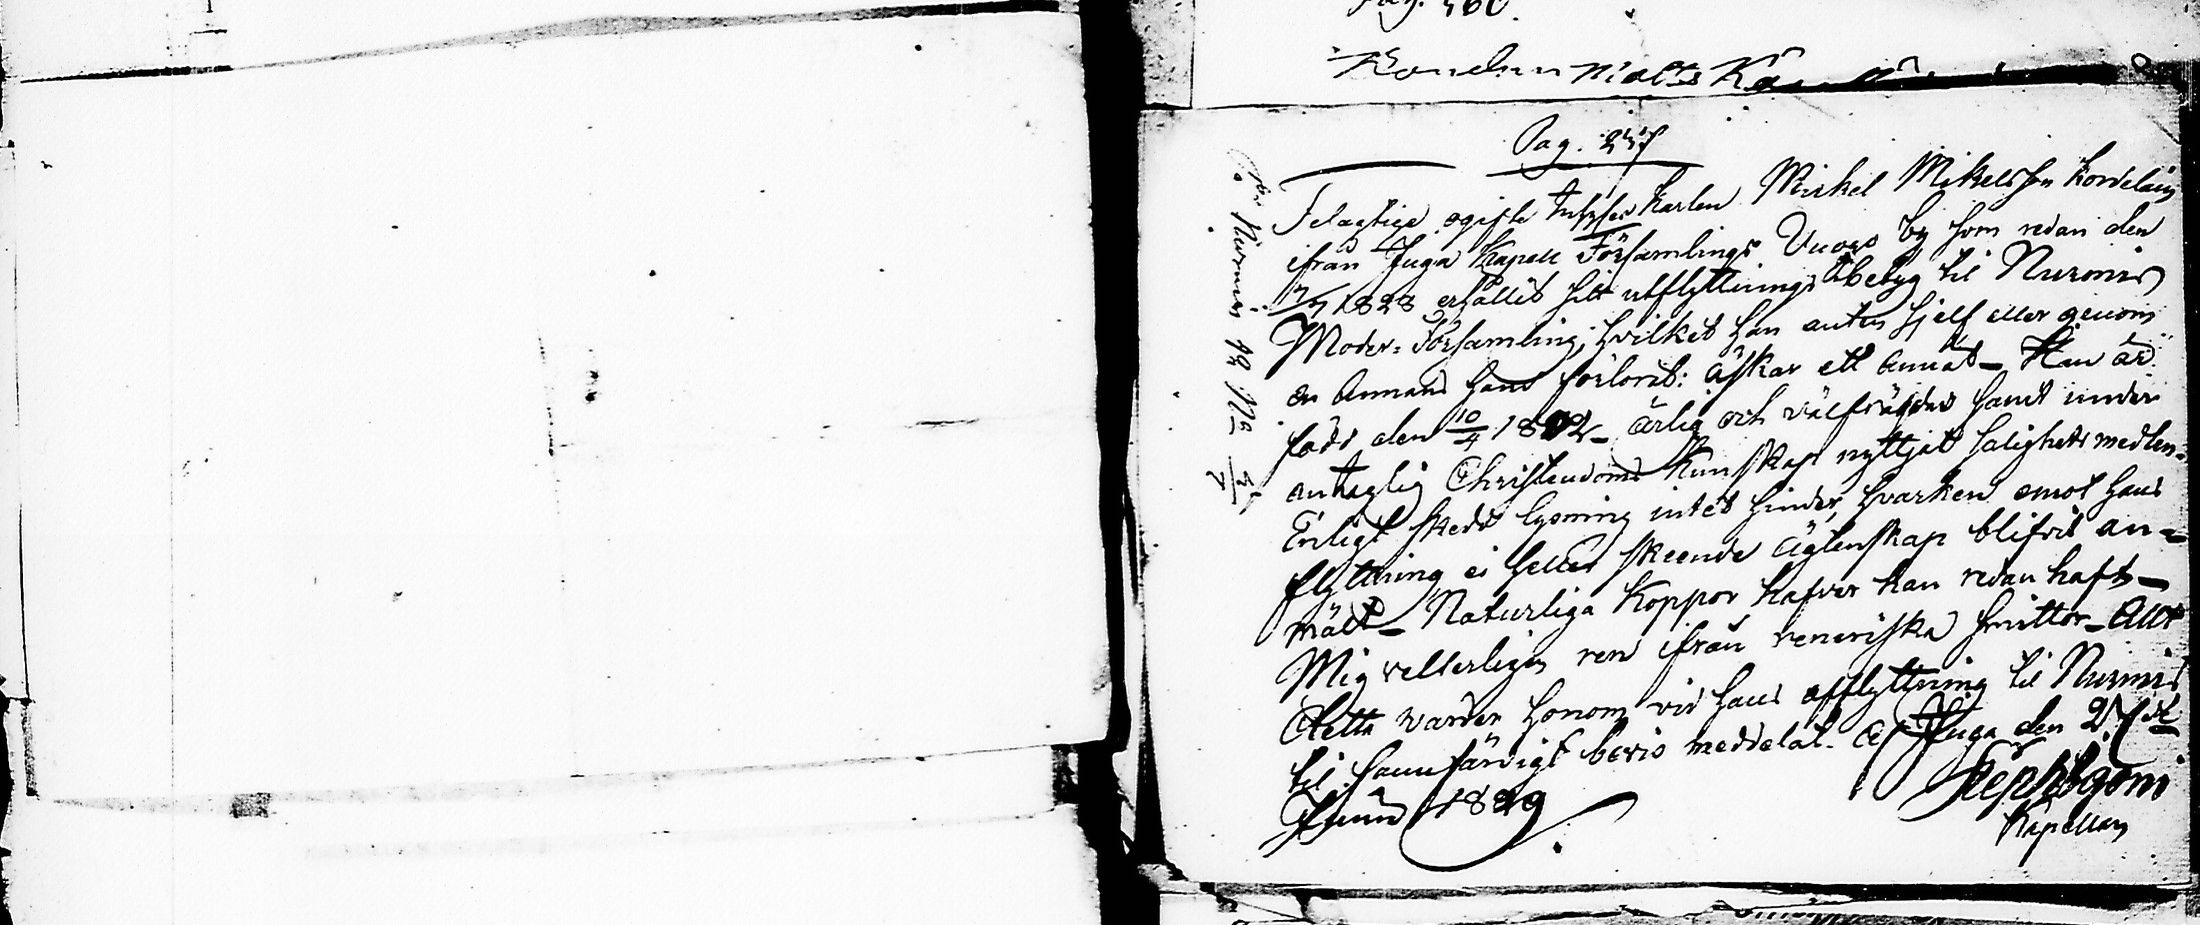 Pag. 460.
Matts
Pag. 257
ogifte Karlen Mikel Mikelsson Kordelain
ifrån Juga Kapell Församlings Vuoxo by som redan den
1828 erhållit sitt utflyttnings betyg til Nurmis
Moder-Församling, hvilket han antin sjelf eller genom
en Annans hand förlorat: äskar ett annat – Han är
född den 10/4 1802 – ärlig och välfrägdad samt under
antaglig Christendoms Kunskap nyttjat salighets medlen –
Enligt skedd lysning intet hinder, hvarken emot hans
flyttning ei heller skeende ägtenskap blifvit an=
mält – Naturliga Koppor hafver han redan haft –
Mig vetterligen ren ifrån veneriska smittor – Allt
Detta varder honom vid hans afflyttning til Nurmis
til sannfärdigt bevis meddelat. Af Juga den 27de
Junii 1829
Kapellan
Nurmis